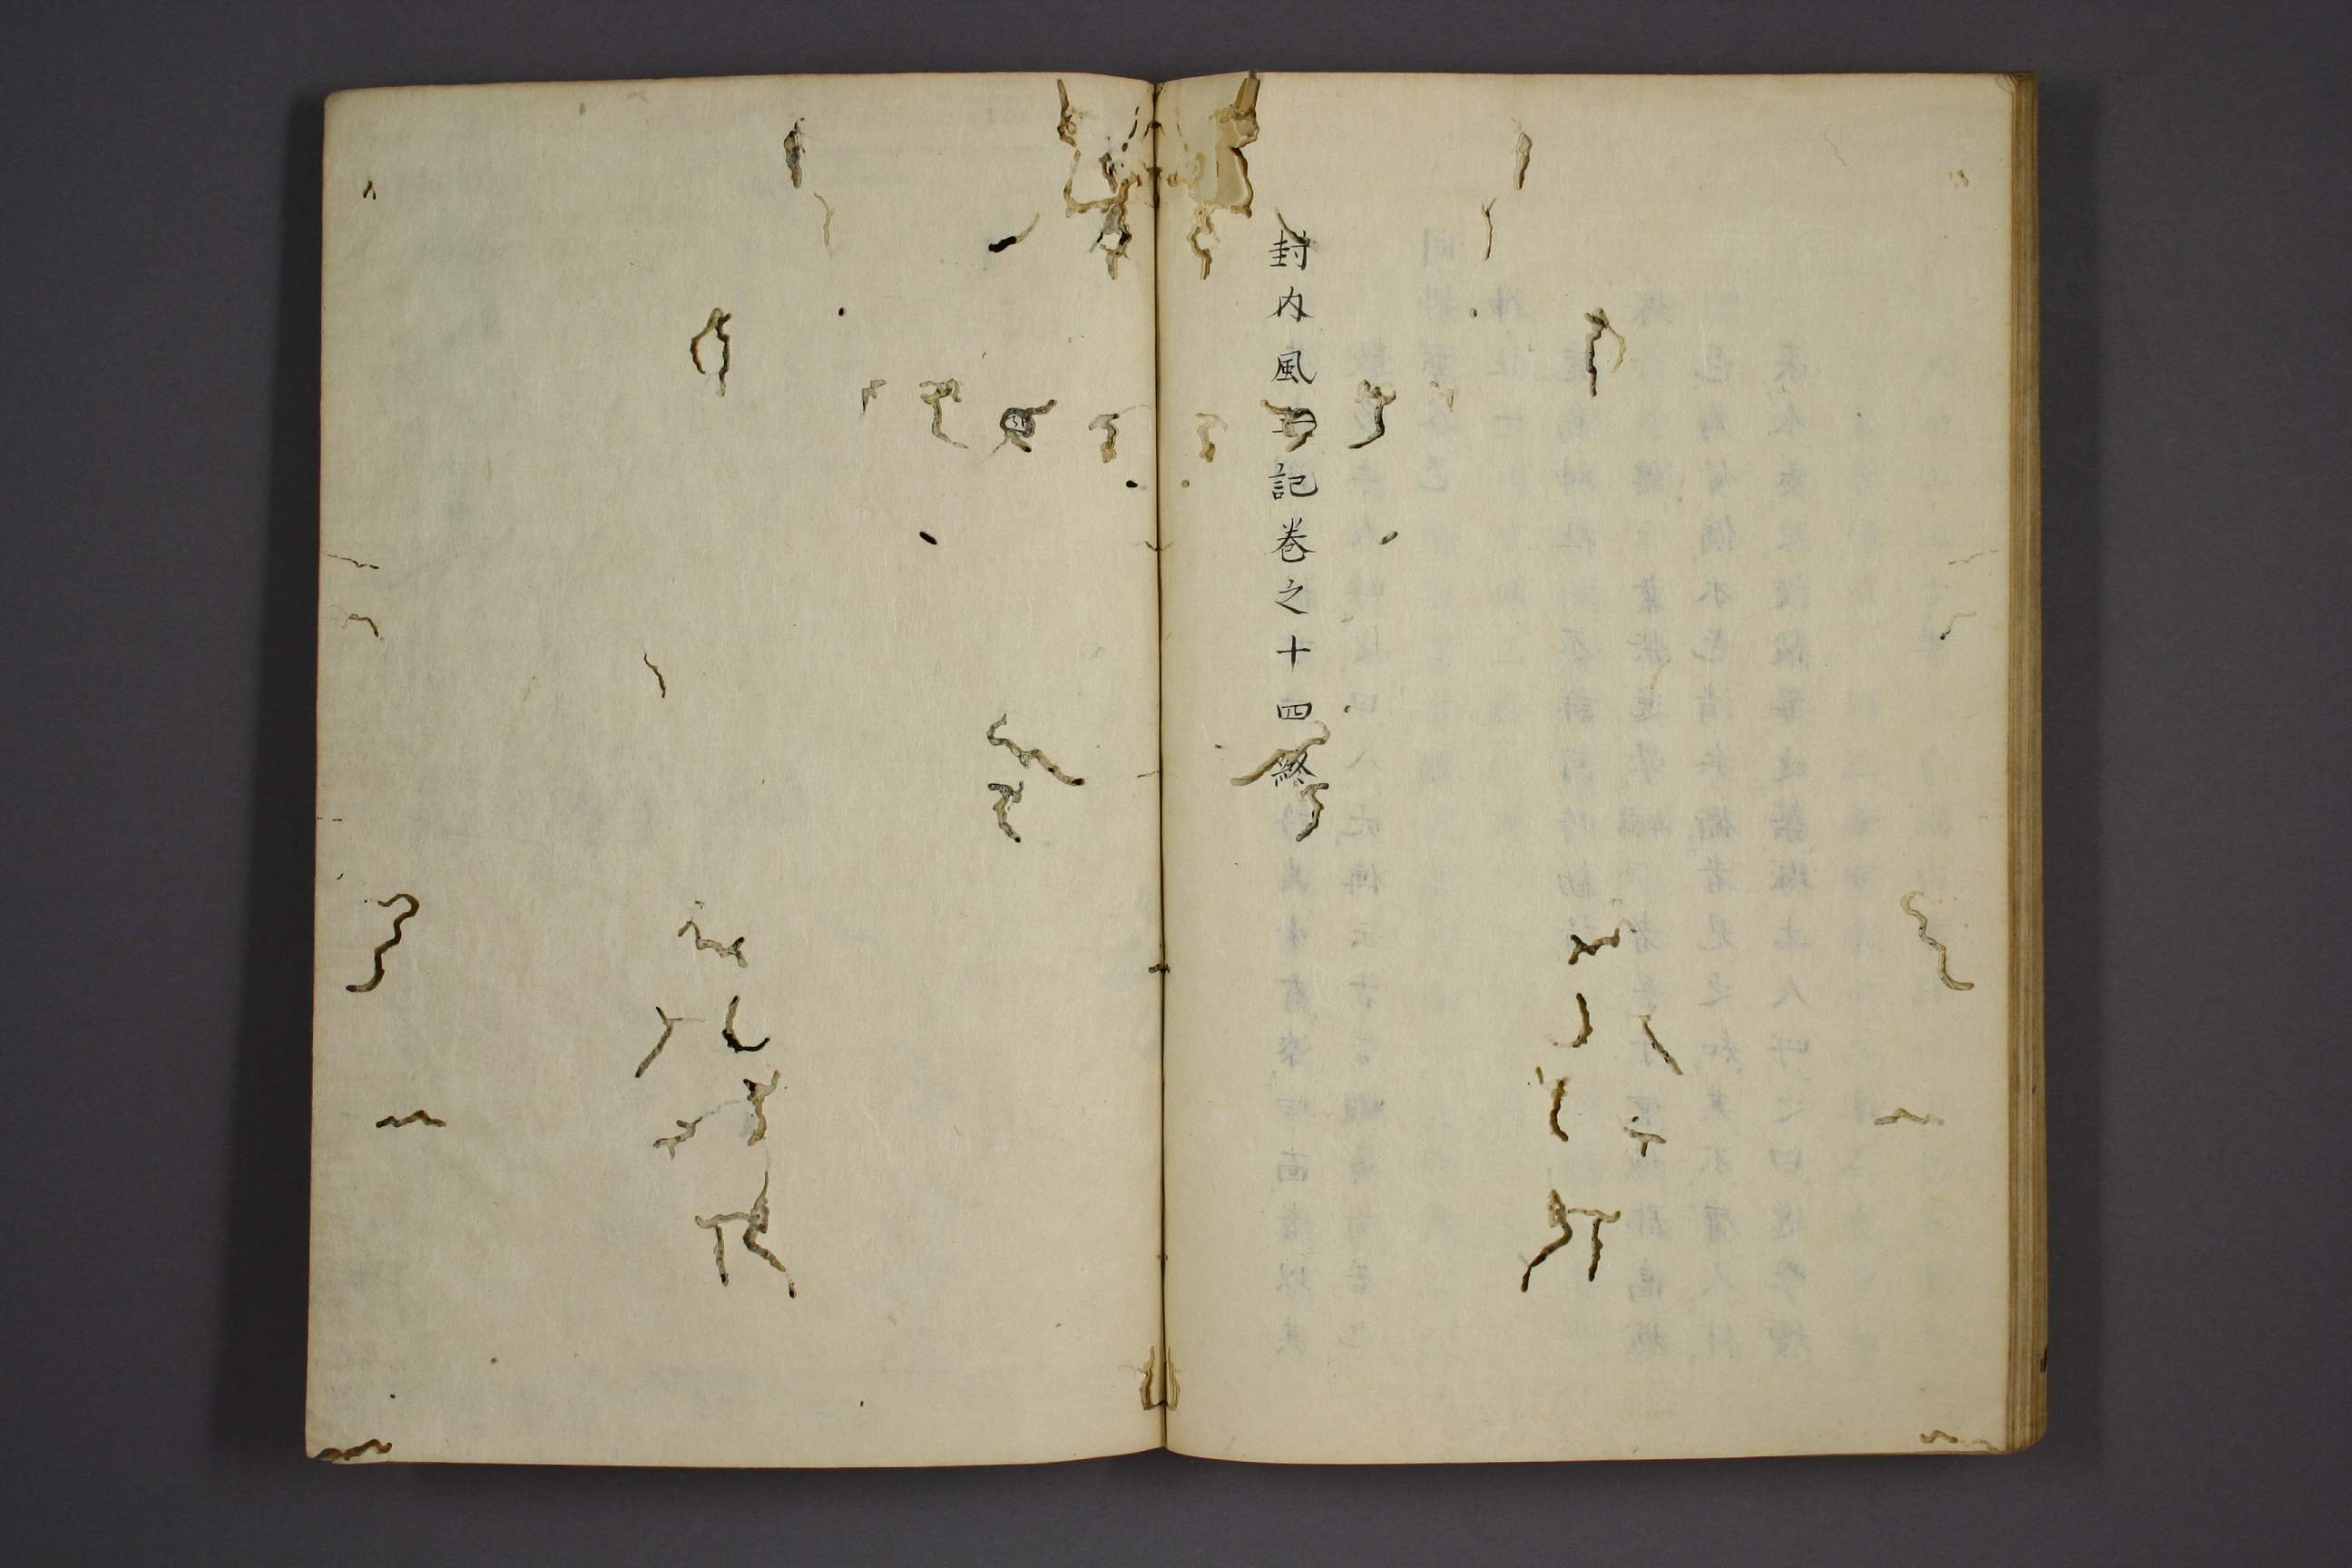 封内風土記巻之十四終